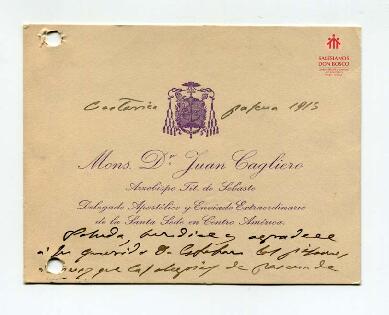 SALESIANOS
DON BOSCO
Costarica pascua 1913
Mons. Dr. Juan Cagliero
Arzobispo Tit. de Sebaste
Delegado Apostólico y Enviado Extraordinario
de la Santa Sede en Centro América.
Saluda bendice y agradece
á su querido D. Esteban las
que las alegrias de pascua de